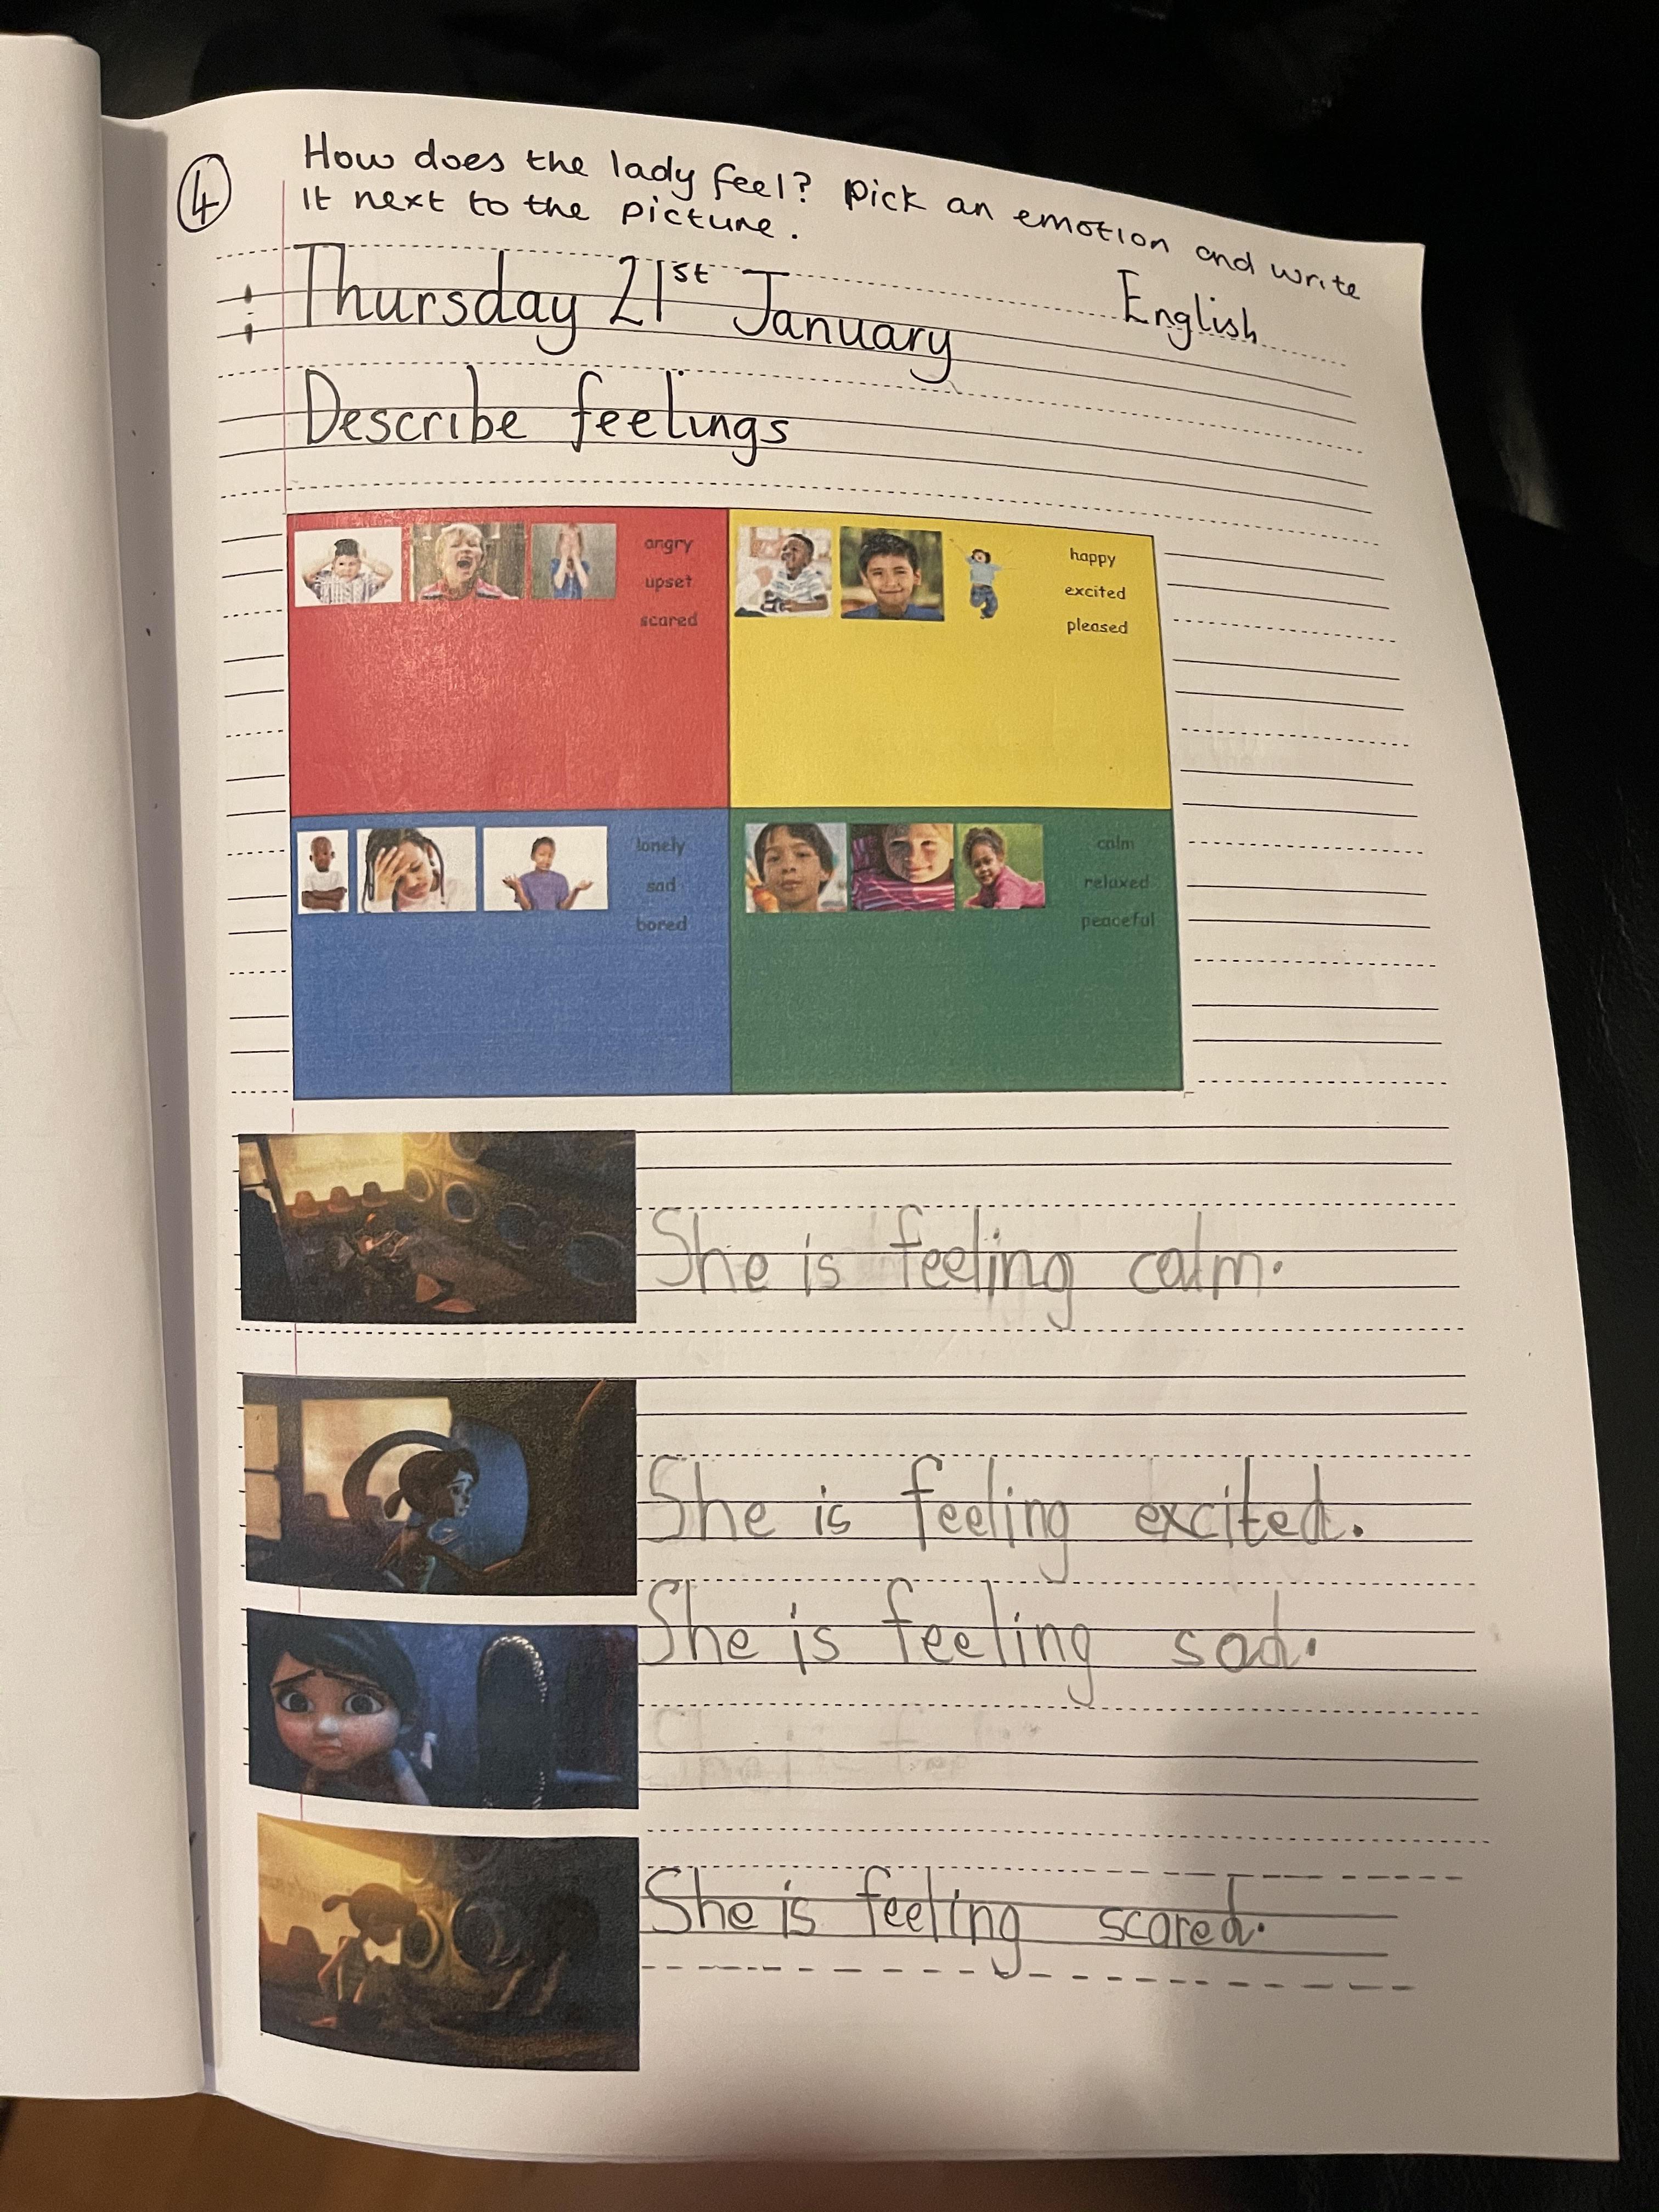 4
How does the lady feel? Pick an emotion and write
it next to the picture.
Thursday 21st January
English
Describe feelings
angry
upset
scared
happy
excited
pleased
lonely
sad
bored
calm
relaxed
peaceful
She is feeling calm.
She is feeling excited.
She is feeling sad.
She is feeling scared.